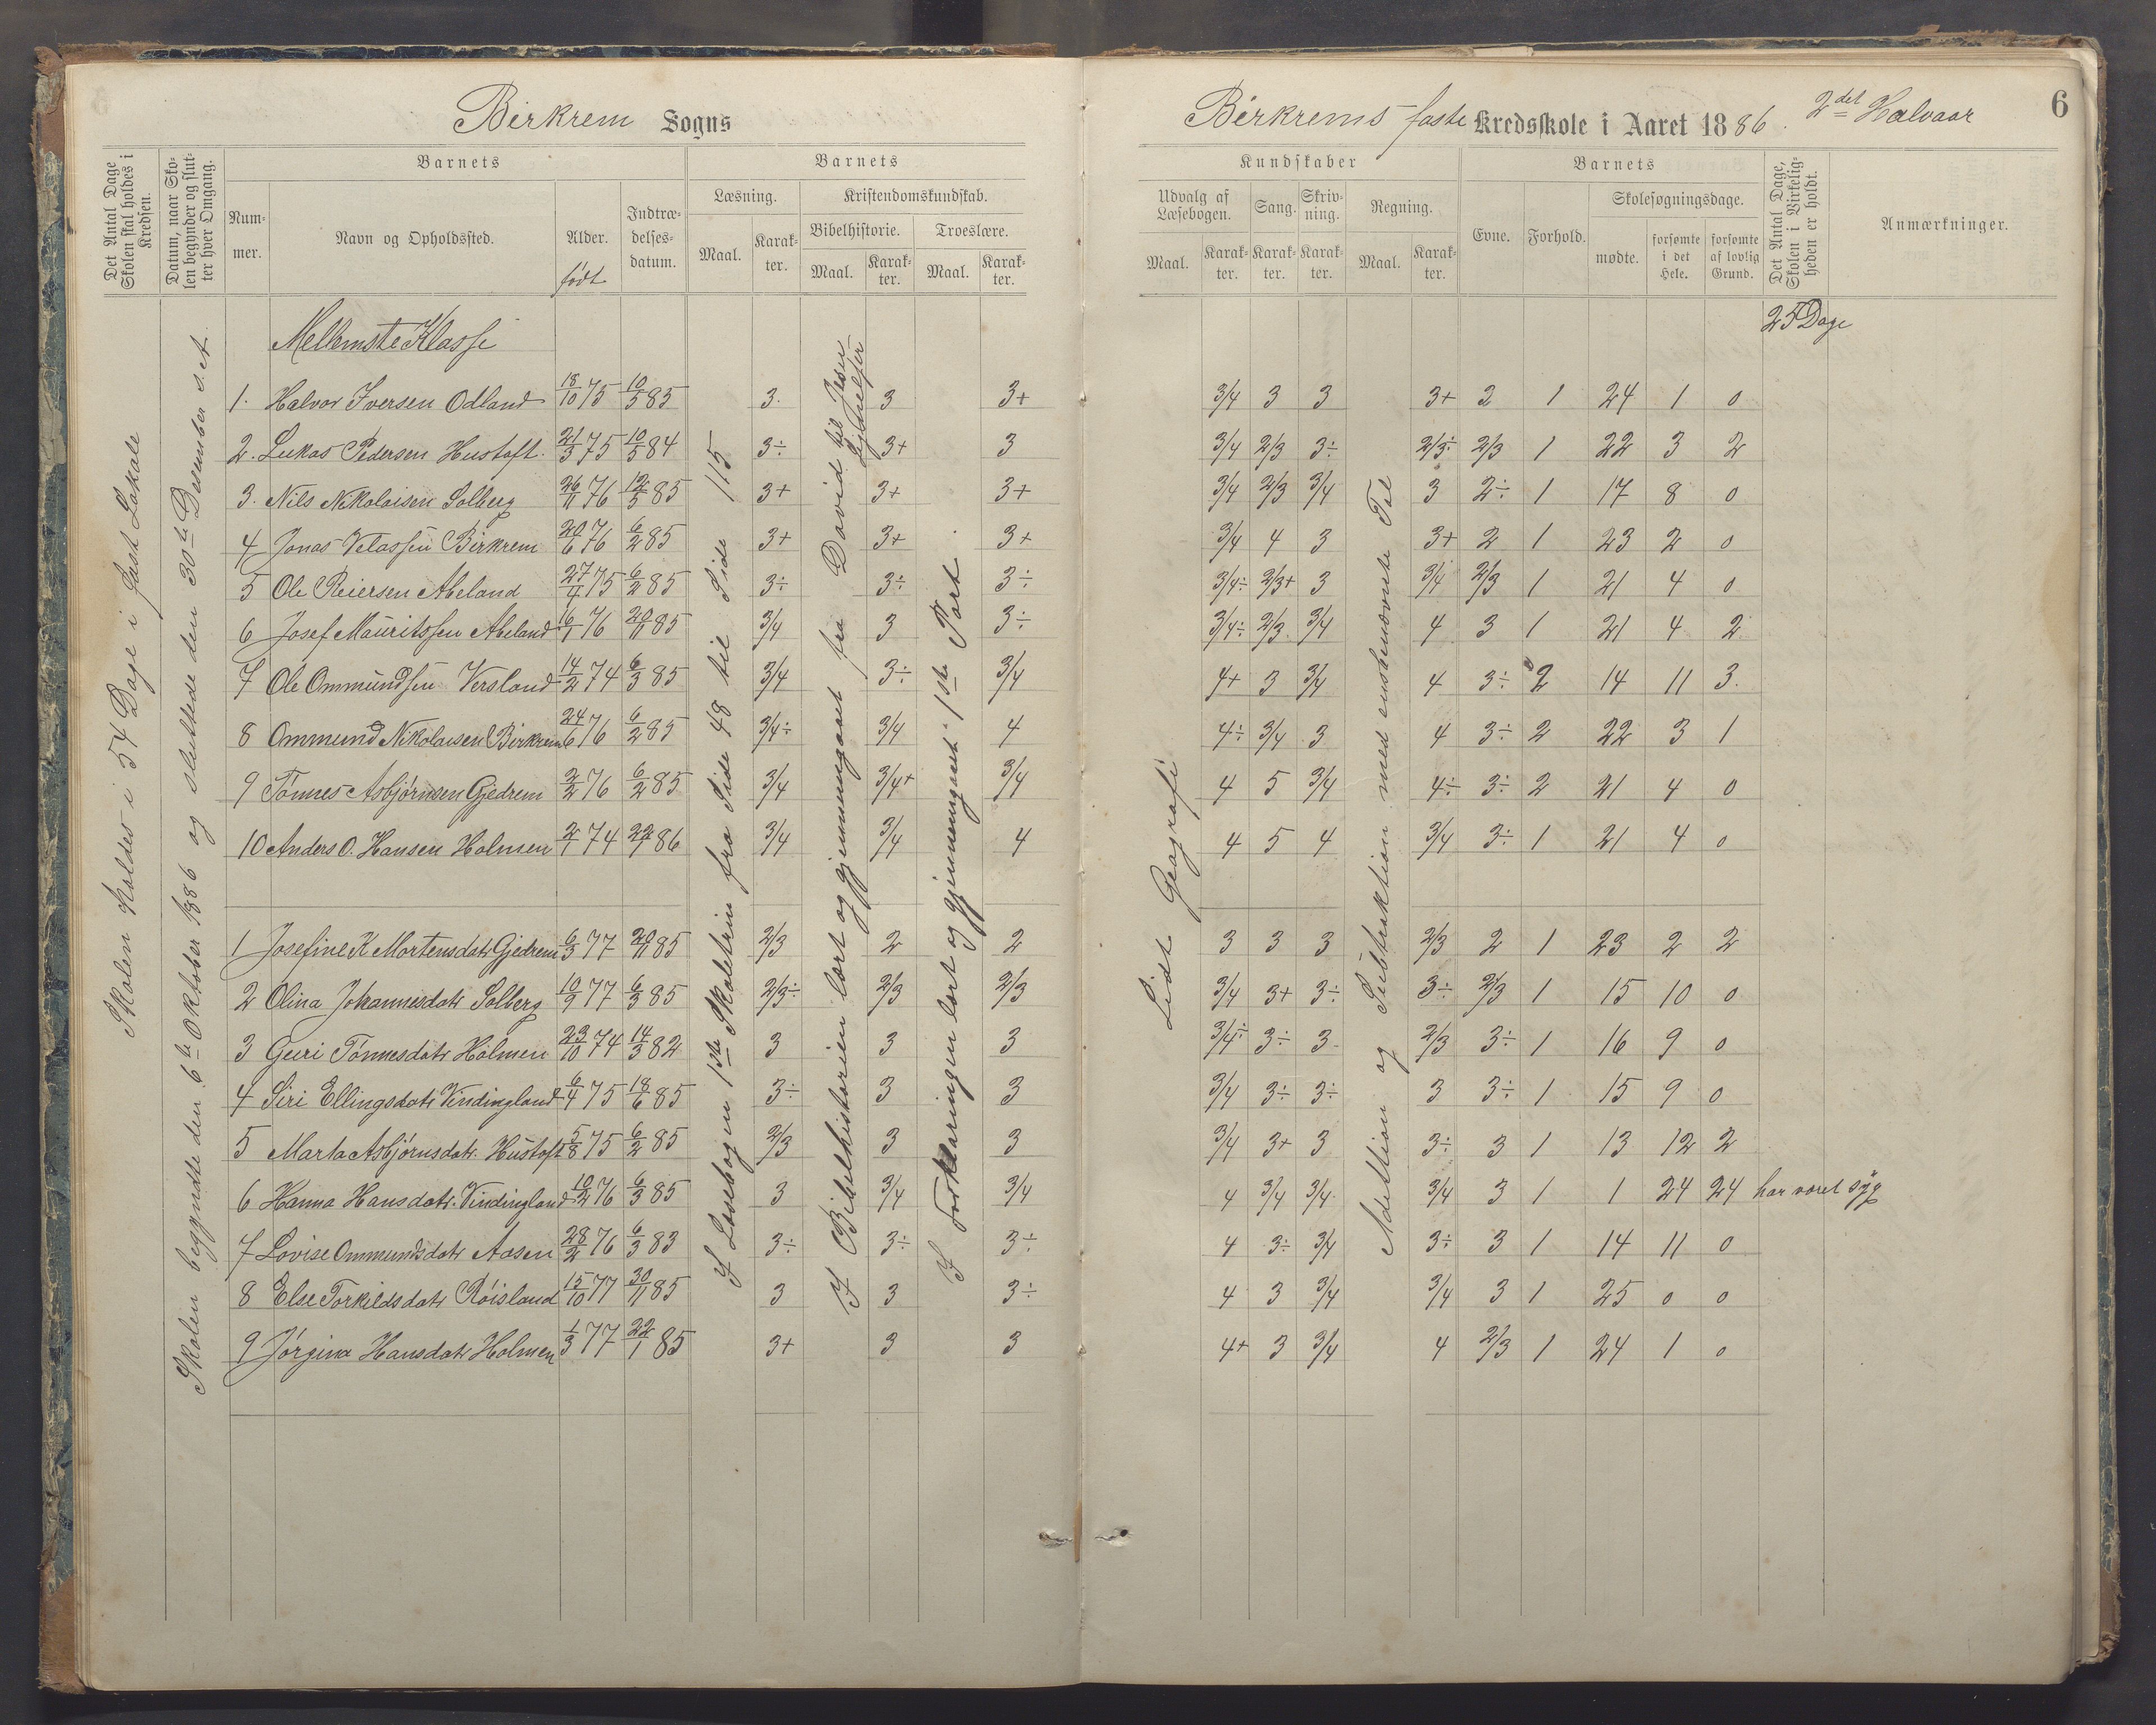 Birkrem Sogns
Birkrems faste Kredsskole i Aaret 1886. 2det Halvaar
6
Det Antal Dage Skolen skal holdes i Kredsen.
Datum, naar Skolen begynder og slutter hver Omgang.
Barnets
Nummer.
Navn og Opholdssted.
Alder. født
Indtrædelses-datum.
Barnets
Læsning.
Maal.
Karakter.
Kristendomskundskab.
Bibelhistorie.
Maal.
Karakter.
Troeslære.
Maal.
Karakter.
Kundskaber
Udvalg af Læsebogen.
Maal.
Karakter.
Sang.
Karakter.
Skrivning.
Karakter.
Regning.
Maal.
Karakter.
Barnets
Evne.
Forhold.
Skolesøgningsdage.
mødte.
forsømte i det Hele.
forsømte af lovlig Grund.
Det Antal Dage, Skolen i Virkeligheden er holdt.
Anmærkninger.
Skolen holdes i 54 Dage i fast Lokale
Skolen begyndte den 6te Oktober 1886 og sluttede den 30te Desember s. A.
I Læsebogen 1ste Skoletrin fra Side 48 til Side 115
I Bibelhistorien lært og gjennemgaaet fra David til Jesu
I Forklaringen lært og gjennemgaaet 1ste Part.
Lidt Geografi
Adettion og Subtraktion med ensbenævnte Tal
Mellemste Klasse
25 Dage
1. Halvor Iversen Odland 18/10 75 10/5 85 3. 3 3+ 3/4 3 3 3+ 2 1 24 1 0
2. Lukas Pedersen Hustoft. 21/3 75 10/5 84 3÷ 3+ 3 3/4 2/3 3÷ 2/3÷ 2/3 1 22 3 2
3. Nils Nikolaisen Solberg 26/1 76 12/5 85 3+ 3+ 3+ 3/4 2/3 3/4 3 2÷ 1 17 8 0
4 Jonas Velassen Birkrem 20/6 76 6/2 85 3+ 3+ 3+ 3/4 4 3 3+ 2 1 23 2 0
5 Ole Reiersen Abeland 27/4 75 6/2 85 3÷ 3÷ 3÷ 3/4÷ 2/3+ 3 3/4 2/3 1 21 4 0
6 Josef Mauritssen Abeland 16/1 76 20/11 85 3/4 3 3÷ 3/4÷ 2/3 3/4 4 3 1 21 4 2
7 Ole Ommundsen Versland 14/2 74 6/3 85 3/4 3÷ 3/4 4+ 3 3/4 4 3÷ 2 14 11 3.
8 Ommund Nikolaisen Birkrem 24/6 76 6/2 85 3/4÷ 3/4 4 4÷ 3/4 3 4 3÷ 2 22 3 1
9 Tønnes Asbjørnsen Gjedrem 2/2 76 6/2 85 3/4 3/4+ 3/4 4 5 3/4 4÷ 3÷ 2 21 4 0
10 Anders O. Hansen Holmen 2/1 74 22/1 86 3/4 3/4 4 4 5 4 3/4 3÷ 1 21 4 0
1 Josefine K Mortensdatr Gjedrem 6/3 77 20/11 85 2/3 2 2 3 3 3 2/3 2 1 23 2 2
2 Olina Johannesdatr Solberg 10/9 77 6/3 85 2/3÷ 2/3 2/3 3/4 3+ 3÷ 3÷ 2/3 1 15 10 0
3 Guri Tønnesdatr Holmen 23/10 74 14/3 82 3 3 3 3/4÷ 3÷ 3 2/3 3÷ 1 16 9 0
4 Siri Ellingsdatr Vindingland 6/4 75 18/6 85 3÷ 3 3 3/4 3÷ 3÷ 3 3÷ 1 15 9 0
5 Marta Asbjørnsdatr. Hustoft 5/8 75 6/2 85 2/3 3 3 3/4 3+ 3 3÷ 3 1 13 12 2
6 Hanna Hansdatr. Vindingland 10/2 76 6/3 85 3 3/4 3/4 4 3/4 3/4 3/4 3 1 1 24 24 har været syg
7 Lovise Ommundsdatr Aasen 28/2 76 6/3 83 3÷ 3÷ 3÷ 4 3÷ 3/4 3÷ 3 1 14 11 0
8 Else Torkildsdatr Røisland 15/10 77 30/11 85 3 3 3÷ 4 3 3/4 3/4 3 1 25 0 0
9 Jørgina Hansdatr Holmen 1/3 77 22/1 85 3+ 3 3 4+ 3 3/4 4 2/3 1 24 1 0